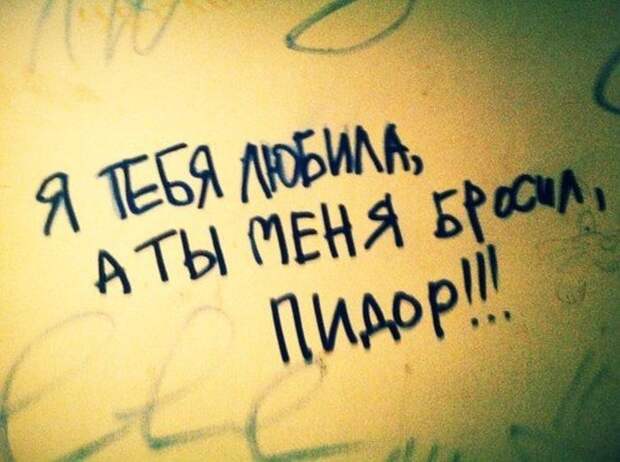 Я ТЕБЯ ЛЮБИЛА,
А ТЫ МЕНЯ БРОСИЛ,
ПИДОР!!!